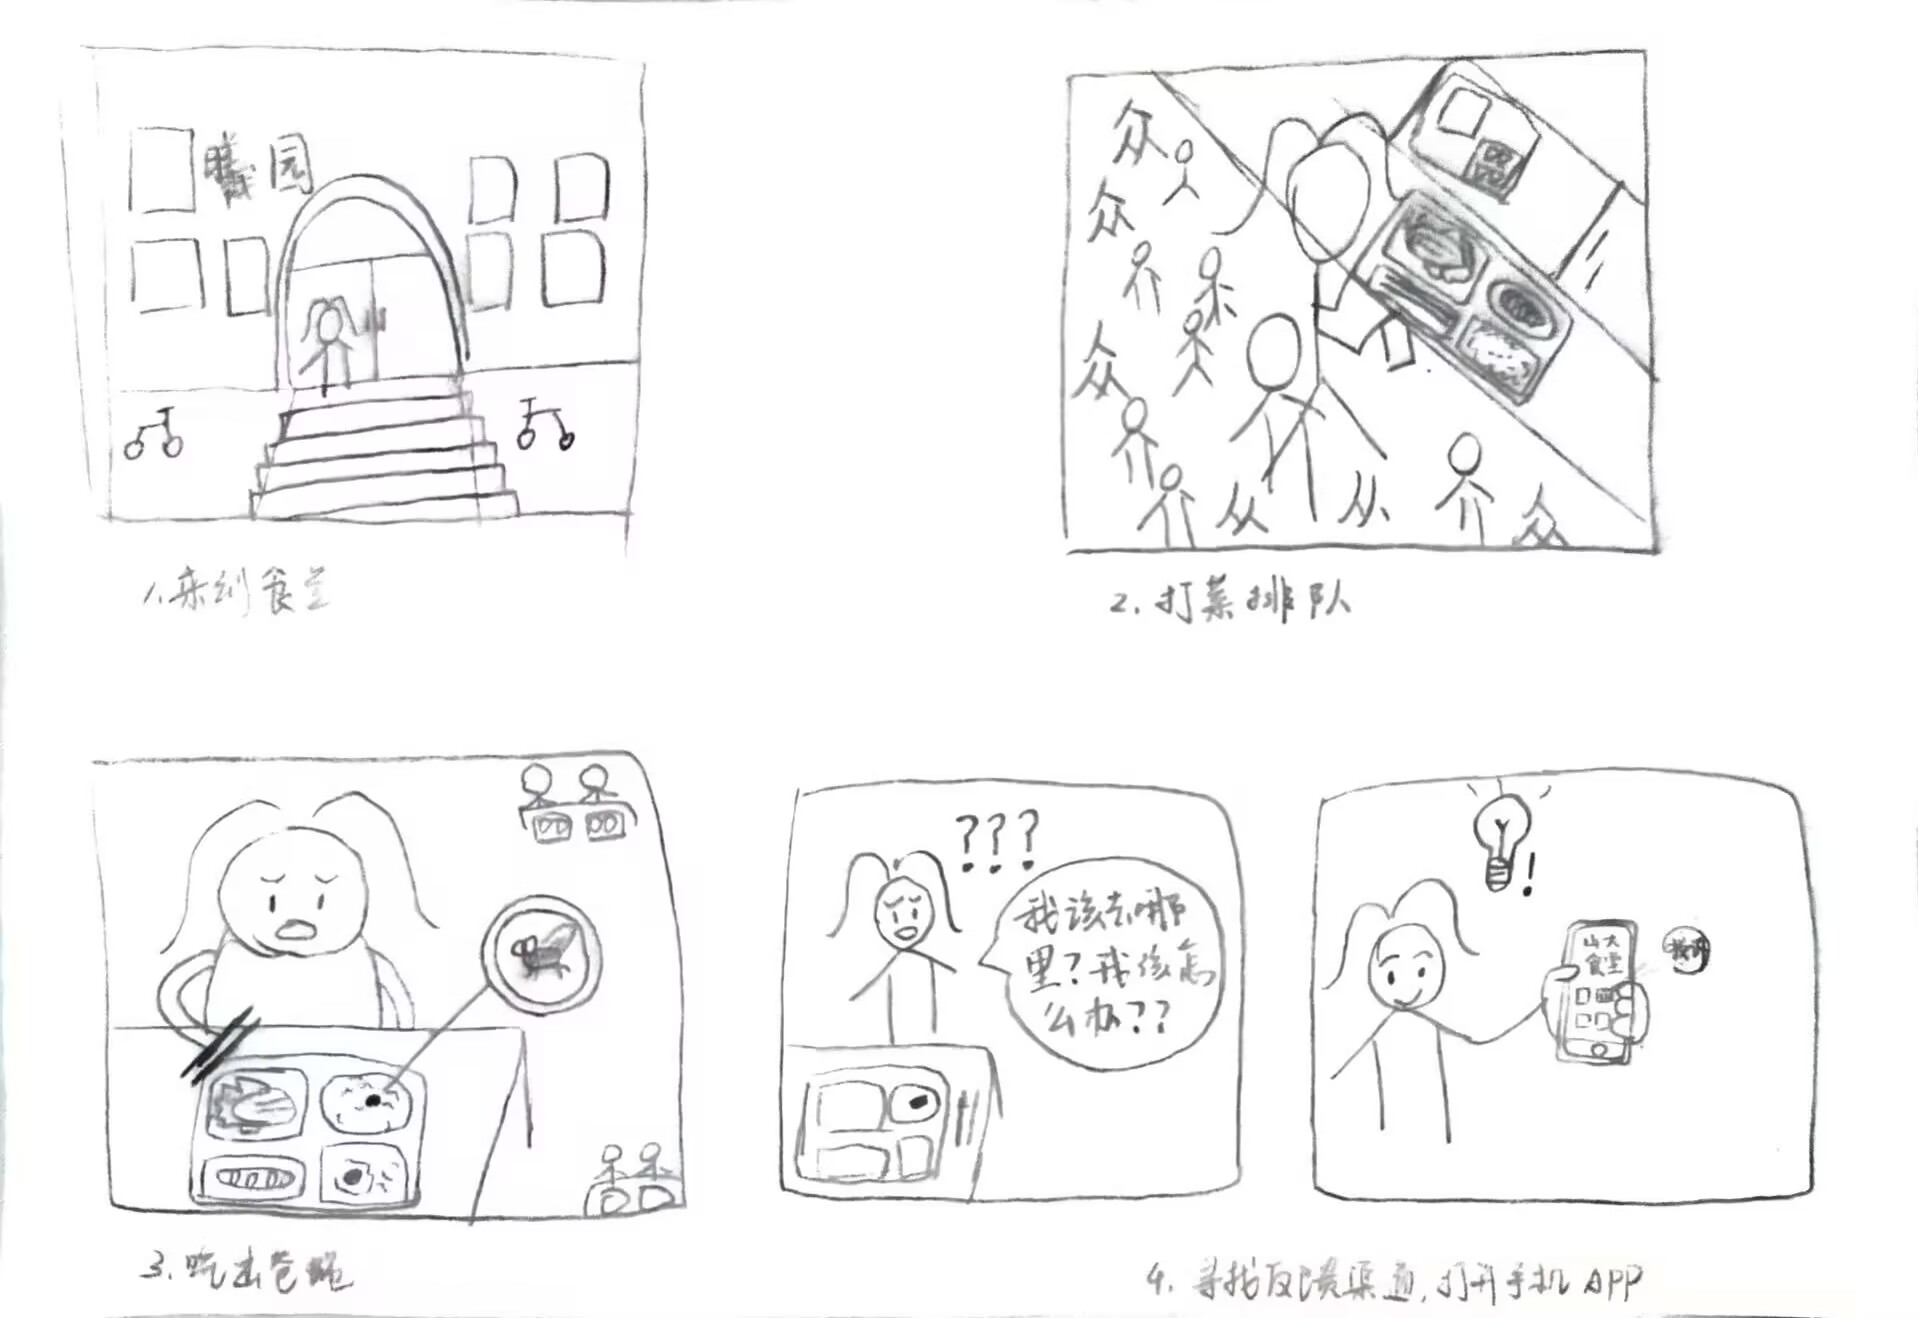 餐园
1.来到食堂
2.打菜排队
3.吃出苍蝇
???
我该去哪
里?我该怎
么办??
!
山大
食堂
4.寻找反馈渠道,打开手机APP